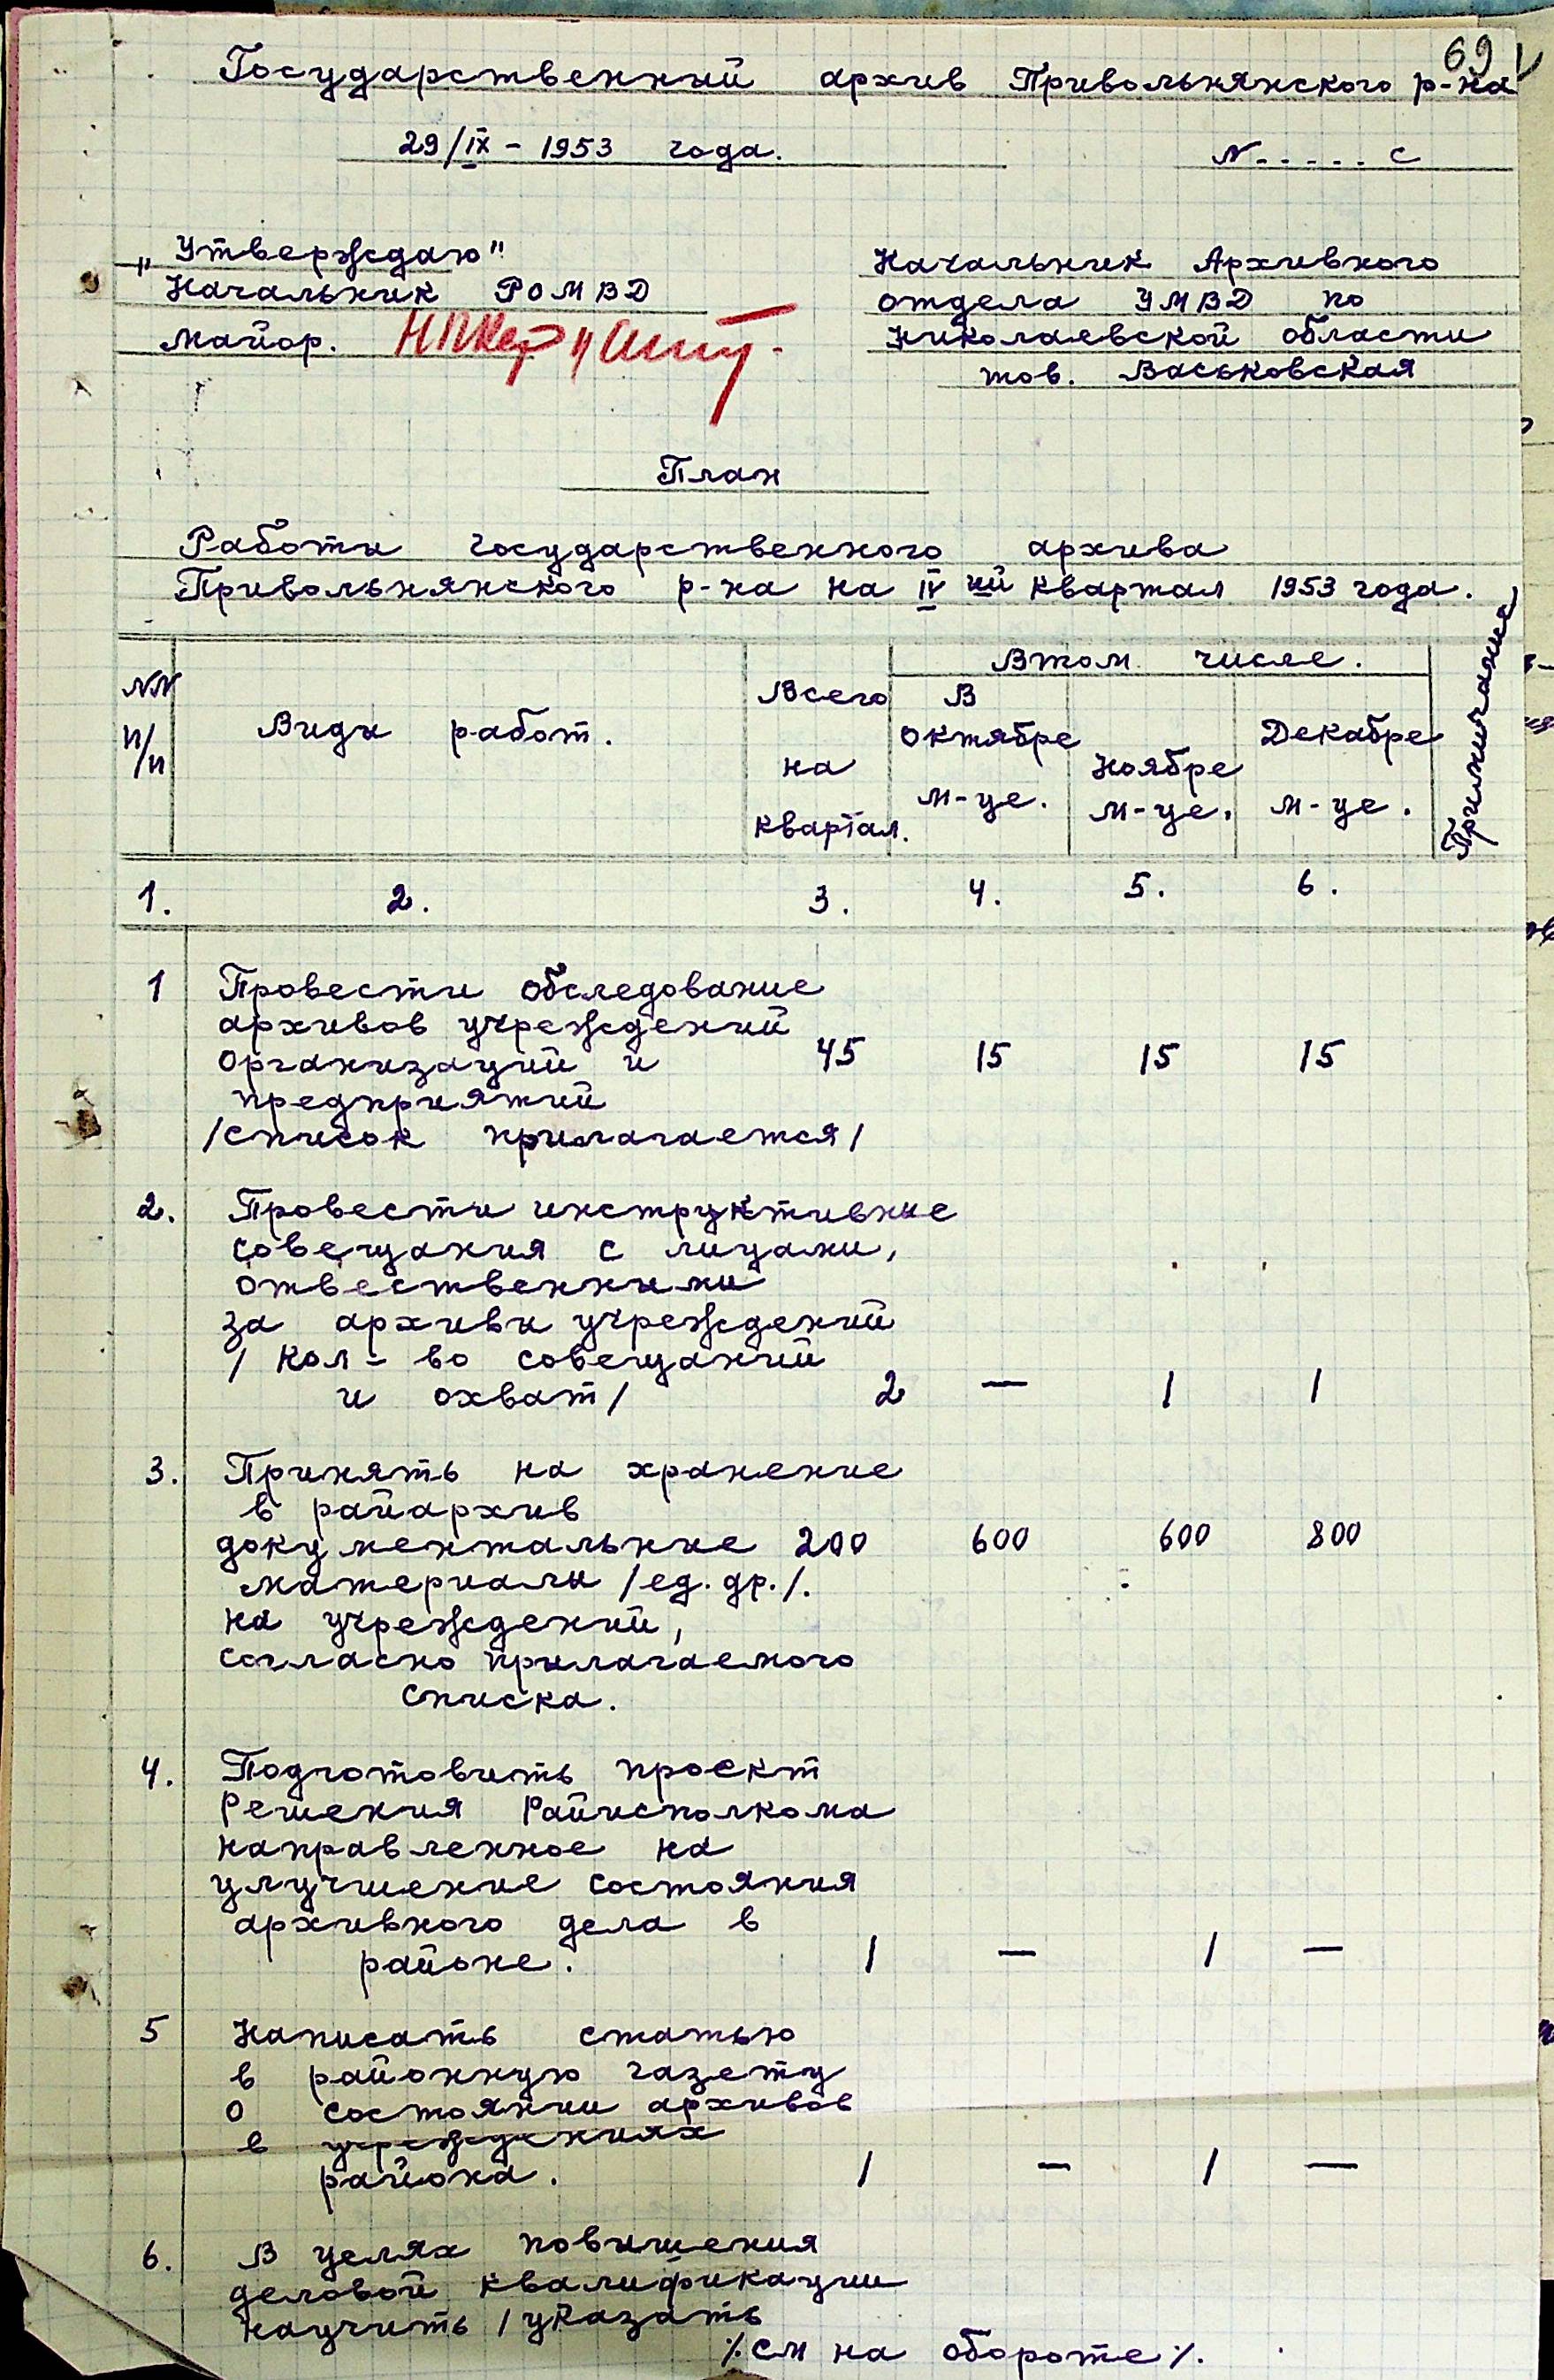 69
Государственный архив Привольнянского р-на
29/IX - 1953 года.
N - - - - - с
„Утверждаю"
Начальник РОМВД
майор.
Начальник Архивного
отдела УМВД по
Николаевской области
тов. Васьковская
План
Работы государственного архива
Привольнянского р-на на IV ый квартал 1953 года.
NN п/п
Виды работ.
Всего на квартал.
Втом числе.
В октябре м-це.
Ноябре м-це.
Декабре м-це.
Примичание
1. 2. 3. 4. 5. 6.
1 Провести обследование
архивов учреждений
организаций и 45 15 15 15
предприятий
/список прилагается/
2. Провести инструктивные
совещания с лицами,
отвественными
за архивы учреждений
/ кол-во совещаний
и охват/ 2 — 1 1
3. Принять на хранение
в райархив
документальные 200 600 600 800
материалы /ед. др./.
на учреждений,
согласно прылагаемого
списка.
4. Подготовить проект
Решения Райисполкома
направленное на
улучшение состояния
архивного дела в
районе. 1 — 1 —
5 Написать статью
в районную газету
о состоянии архивов
в учреждениях
района. 1 — 1 —
6. В целях повышения
деловой квалификации
научить / указать
%см на обороте%.